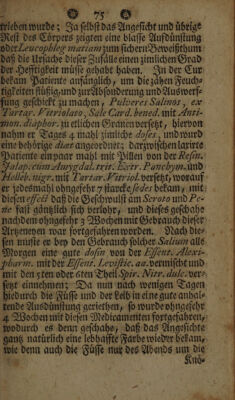 75
trieben wurde; Ja selbst das Angesicht und übrige
Rest des Cörpers zeigten eine blasse Aufdünstung
oder Leucophlegmatiam zum sichern Beweißthum
daß die Ursache dieser Zufälle einen zimlichen Grad
der Hefftigkeit müsse erhabt haben. In der Cur
bekam Patiente anfänglich, um die zähen Feuch-
tigkeiten flüßig, und zur Absonderung und Auswerf-
fung geschickt zu machen, Pulveres Salinos, ex
Tartar. Vitriolato, Sale Card. bened. mit Anti-
mon. diaphor. zu etlichen Granen versetzt, hiervon
nahm er Tages 4 mahl zimliche doses, und ward
eine behörige diaet angeordnet; darzwischen laxirte
Patiente ein paar mahl mit Pillen von der Resin.
Jalap. cum Amygdal. trit. Extr. Panchym. und
Helleb. nigr. mit Tartar. Vitriol. versetzt, worauf
er jedesmahl ohngefehr 7 starcke sedes bekam, mit
diesen effect daß die Geschwulst am Scroto und Pe-
ne fast gäntzlich sich verlohr, und dieses geschahe
nachdem ohngefehr 3 Wochen mit Gebrauch dieser
Artzeneyen war fortgefahren worden. Nach die-
sen muste er bey den Gebrauch solcher Salium alle
Morgen eine gute dosin von der Essent. Alexi-
pharm. mit der Essent. Scorbtic. aa. vermischt und
mit den 5ten oder 6ten Theil Spir. Nitr. dulc. ver-
setzt einnehmen; Da nun nach wenigen Tagen
hiedurch die Füsse und der Leib in eine gute anhal-
tende Ausdünstung geriethen, so wurde ohngefehr
4 Wochen mit diesen Medicamenten fortgefahren,
wodurch es denn geschahe, daß das Angesichte
gantz natürlich eine lebhaffte Farbe wieder bekam,
wie denn auch die Füsse nur des Abends um die
Knö-